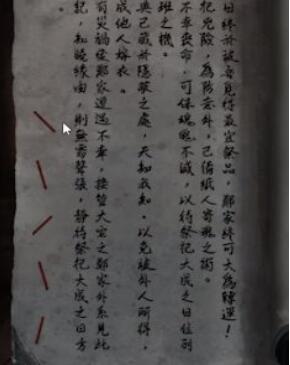 日終於被吾覓得最宜祭品，鄭家終可大為轉運！
祀兇險，為防意外，已備紙人寄魂之術。
不幸喪命，可保魂魄不滅，以待祭祀大成之日位列
班之機。
典已藏於隱蔽之處，天知我知。以免被外人所得，
成他人嫁衣。
有災禍使鄭家遭遇不幸，接管大宅之鄭家外系見此
記，知曉緣由，則無需聲張，靜待祭祀大成之日方
。